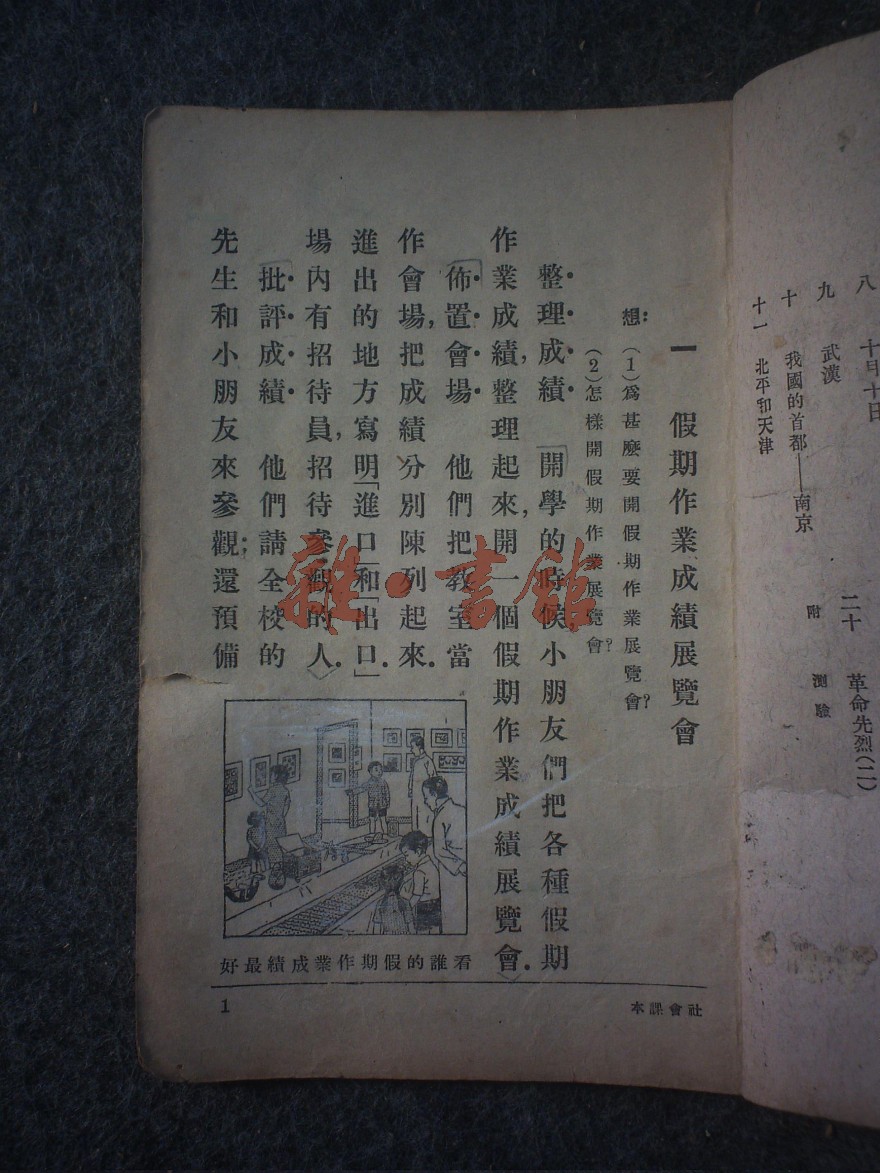 八 十月十日
九 武漢
十 我國的首都——南京
十一 北平和天津
二十 革命先烈(二)
附 測驗
一 假期作業成績展覽會
想:(1)爲甚麼要開假期作業展覽會?
(2)怎樣開假期作業展覽會?
整理成績 開學的時候,小朋友們把各種假期
作業成績,整理起來,開一個假期作業成績展覽會.
佈置會場 他們把教室當
作會場,把成績分別陳列起來.
進出的地方寫明「進口」和「出口」.
場內有招待員,招待參觀的人.
批評成績 他們請全校的
先生和小朋友來參觀;還預備
好最績成業作期假的誰看
1
本課會社
雜·書館